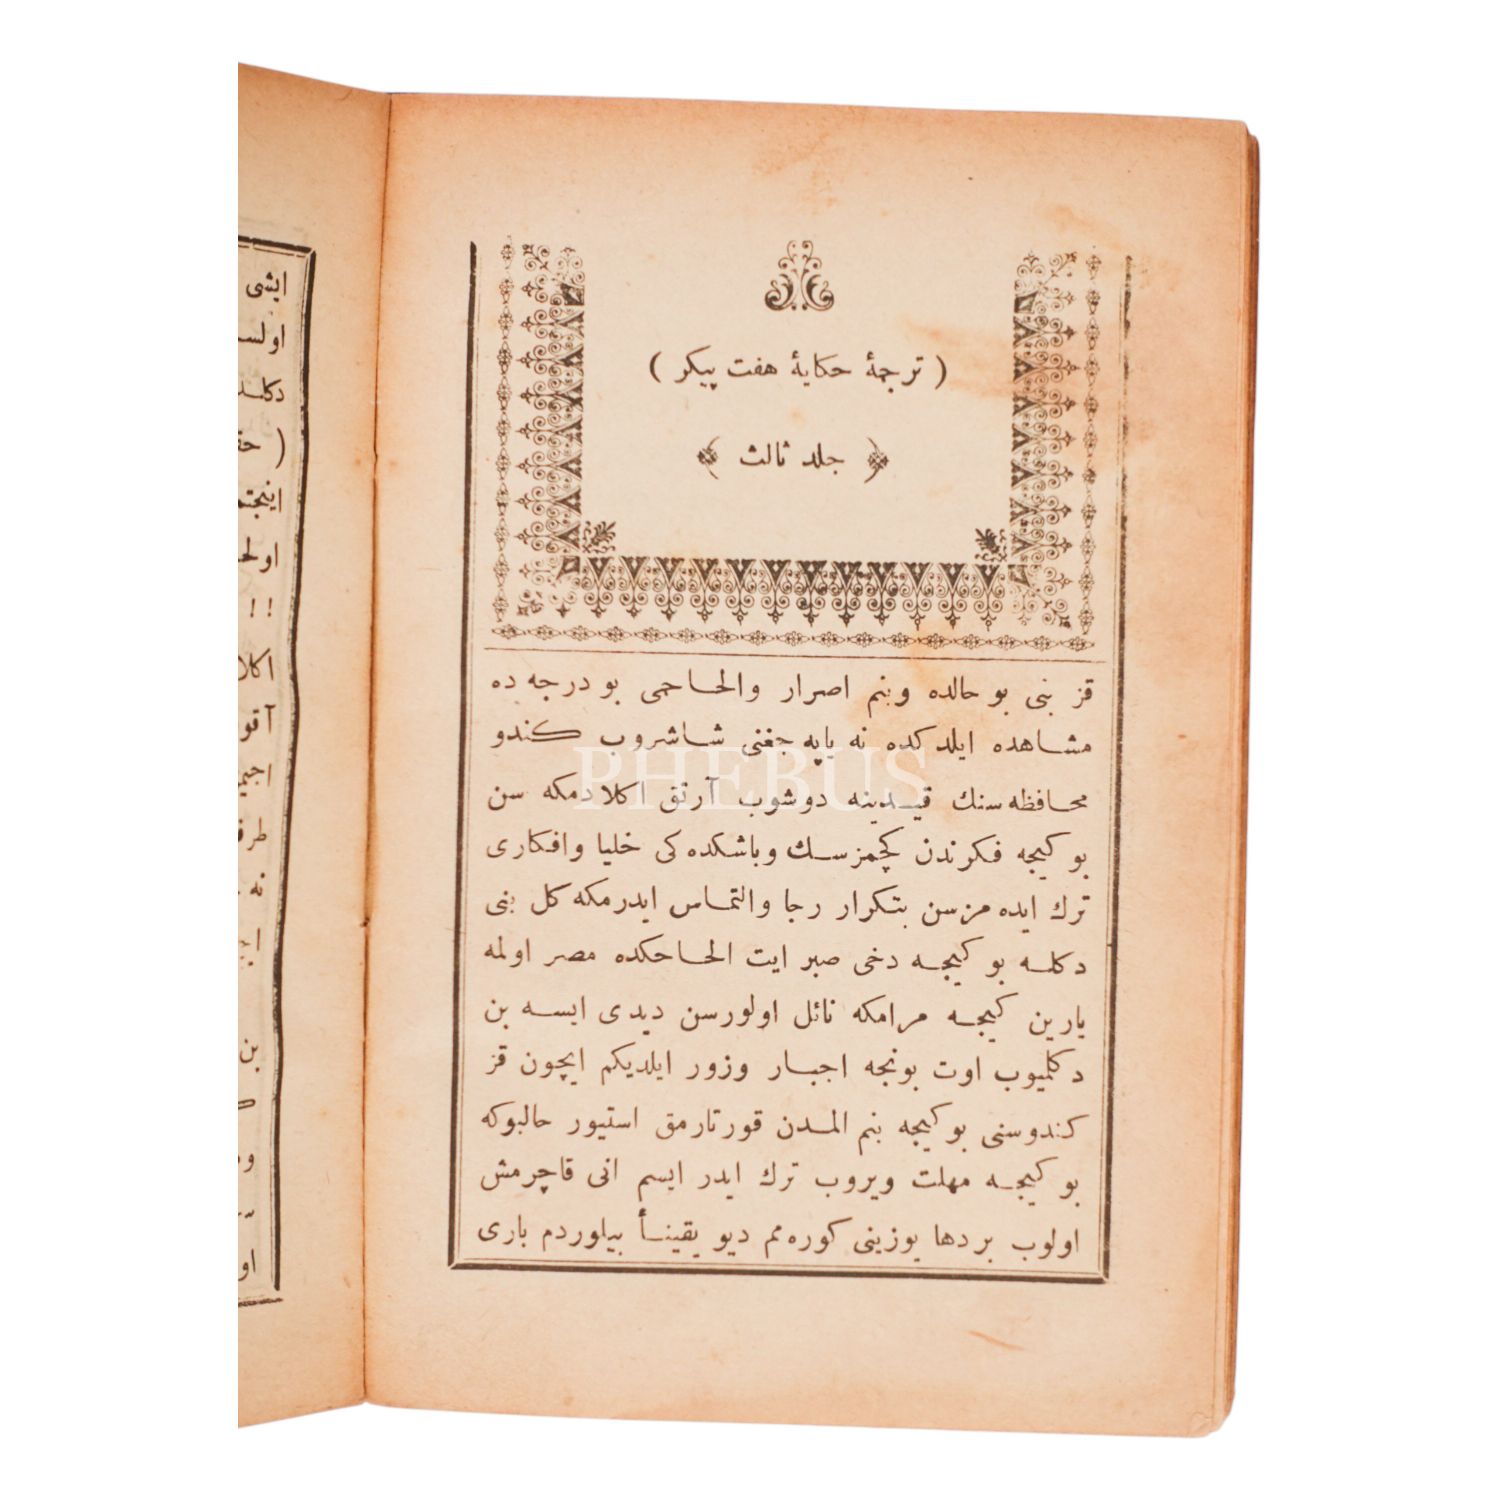 ( ترجمۀ حكایۀ هفت پیكر )
﴿ جلد ثالث ﴾
قز بنی بو حالده وبنم اصرار والحاحمی بو درجه ده
مشاهده ایلد كده نه یاپه جغنی شاشروب كندو
محافظه سنك قیدینه دوشوب آرتق اكلادمكه سن
بو كیجه فكرندن كچمزسك وباشكده كی خلیا وافكاری
ترك ایده مزسن بتكرار رجا والتماس ایدرمكه كل بنی
دكلسه بو كیجه دخی صبر ایت الحاحكده مصر اولمه
یارین كیجه مرامكه نائل اولورسن دیدی ایسه بن
دكلمیوب اوت بونجه اجبار وزور ایلدیكم ایچون قز
كندوسنی بو كیجه بنم المدن قورتارمق استیور حالبوكه
بو كیجه مهلت ویروب ترك ایدر ایسم انی قاچرمش
اولوب بردها یوزینی كوره مم دیو یقیناً بیلوردم باری
ایشی
اولسه
( 
!!
آقو
طرف
نه
بن
PHEBUS